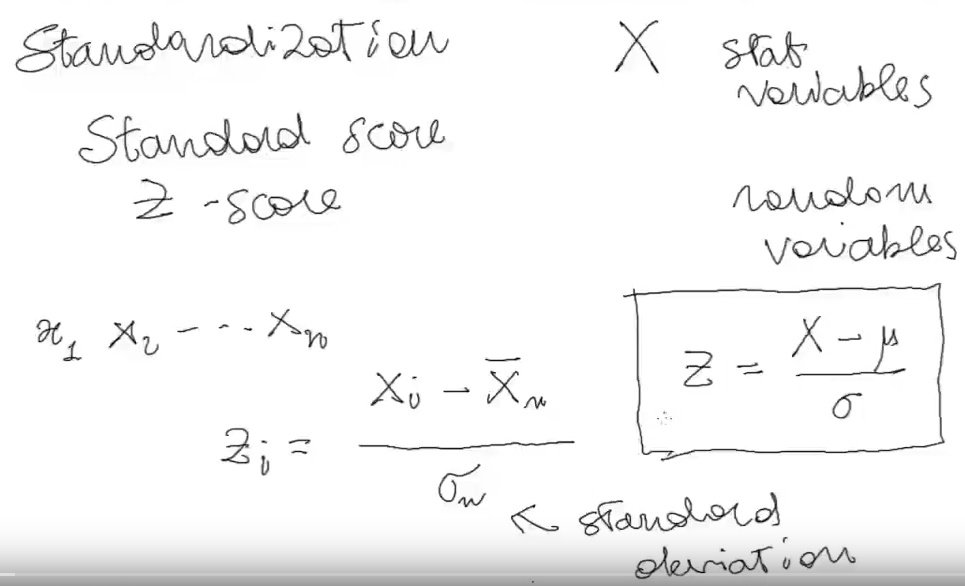 Standardization
Standard score
Z-score
X stat
variables
random
variables
x₁ x₂ - - - xₙ
zᵢ = (xᵢ - x̄ₙ) / σₙ
← standard
deviation
Z = (X - μ) / σ